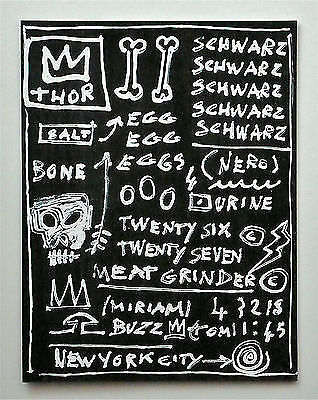 THOR
SCHWARZ
SCHWARZ
SCHWARZ
SCHWARZ
SCHWARZ
SALT
EGG
EGG
EGGS
BONE
(NERO)
URINE
TWENTY SIX
TWENTY SEVEN ©
MEAT GRINDER ©
(MIRIAM)
BUZZ
NEW YORK CITY